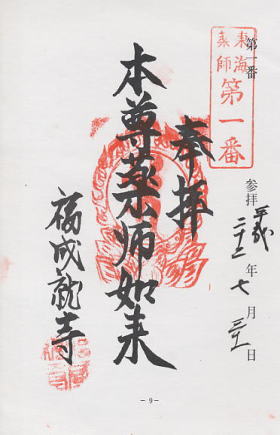 第一番
東海
薬師
第一番
参拝 平成二十二年 七月 日
奉拝
本尊薬師如来
福成就寺
- 9 -